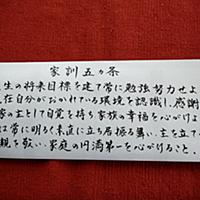 家訓五ヵ条
生の将来目標を建て常に勉強努力せよ
在自分がおかれている環境を認識し、感謝
家の主として自覚を持ち家族の幸福を心がけよ
は常に明るく素直に立ち居振る舞い、主を立て
親を敬い、家庭の円満第一を心がけること、